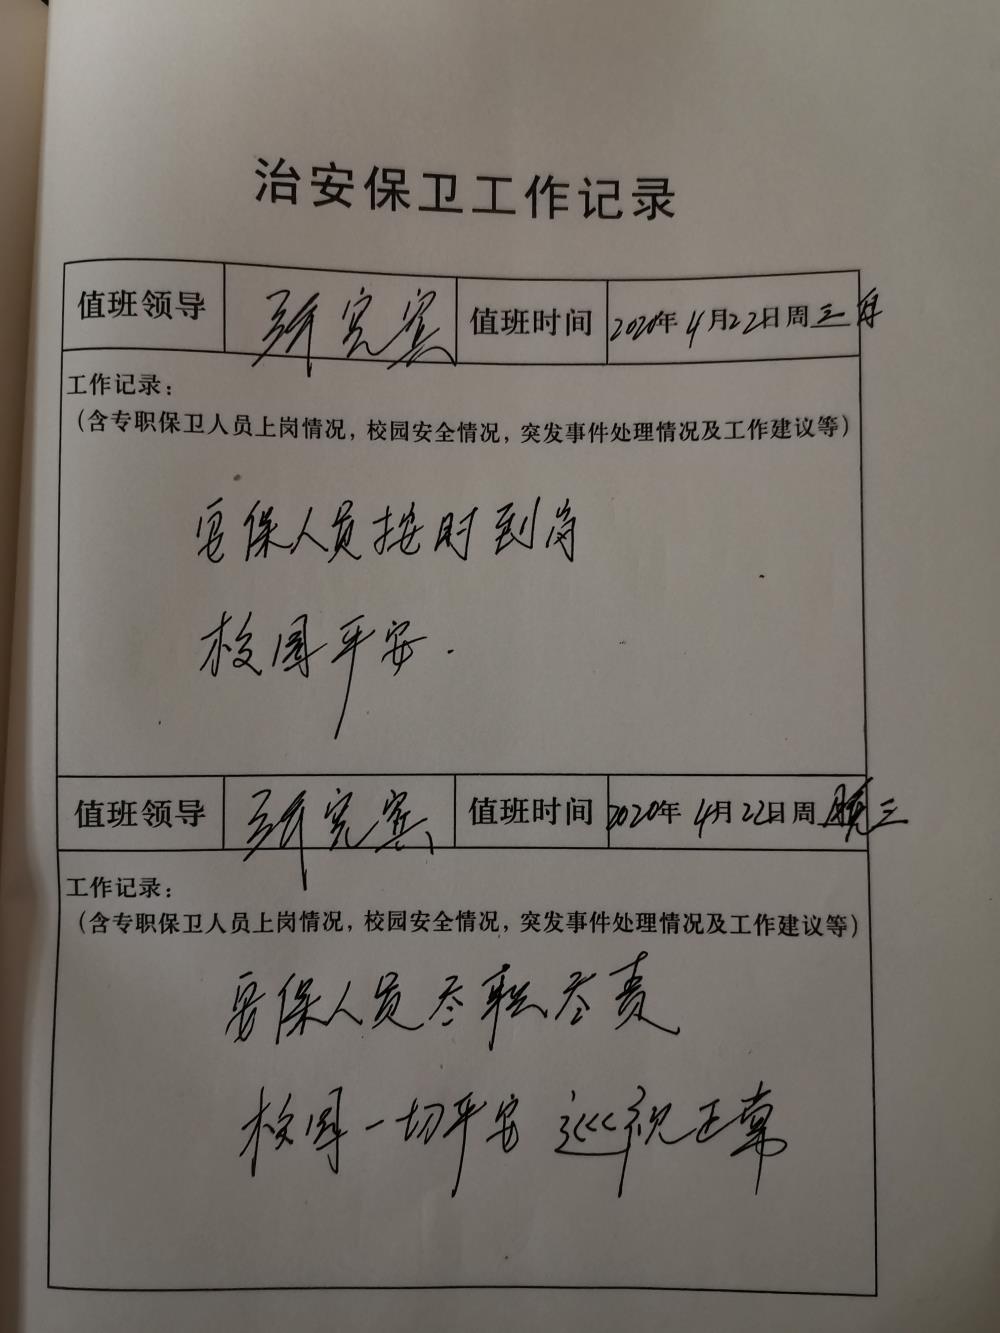 治安保卫工作记录
值班领导 宾 值班时间 2020年4月22日周三
工作记录：
（含专职保卫人员上岗情况，校园安全情况，突发事件处理情况及工作建议等）
安保人员按时到岗
校园平安.
值班领导 宾 值班时间 2020年4月22日周晚三
工作记录：
（含专职保卫人员上岗情况，校园安全情况，突发事件处理情况及工作建议等）
安保人员尽职尽责
校园一切平安 巡视正常